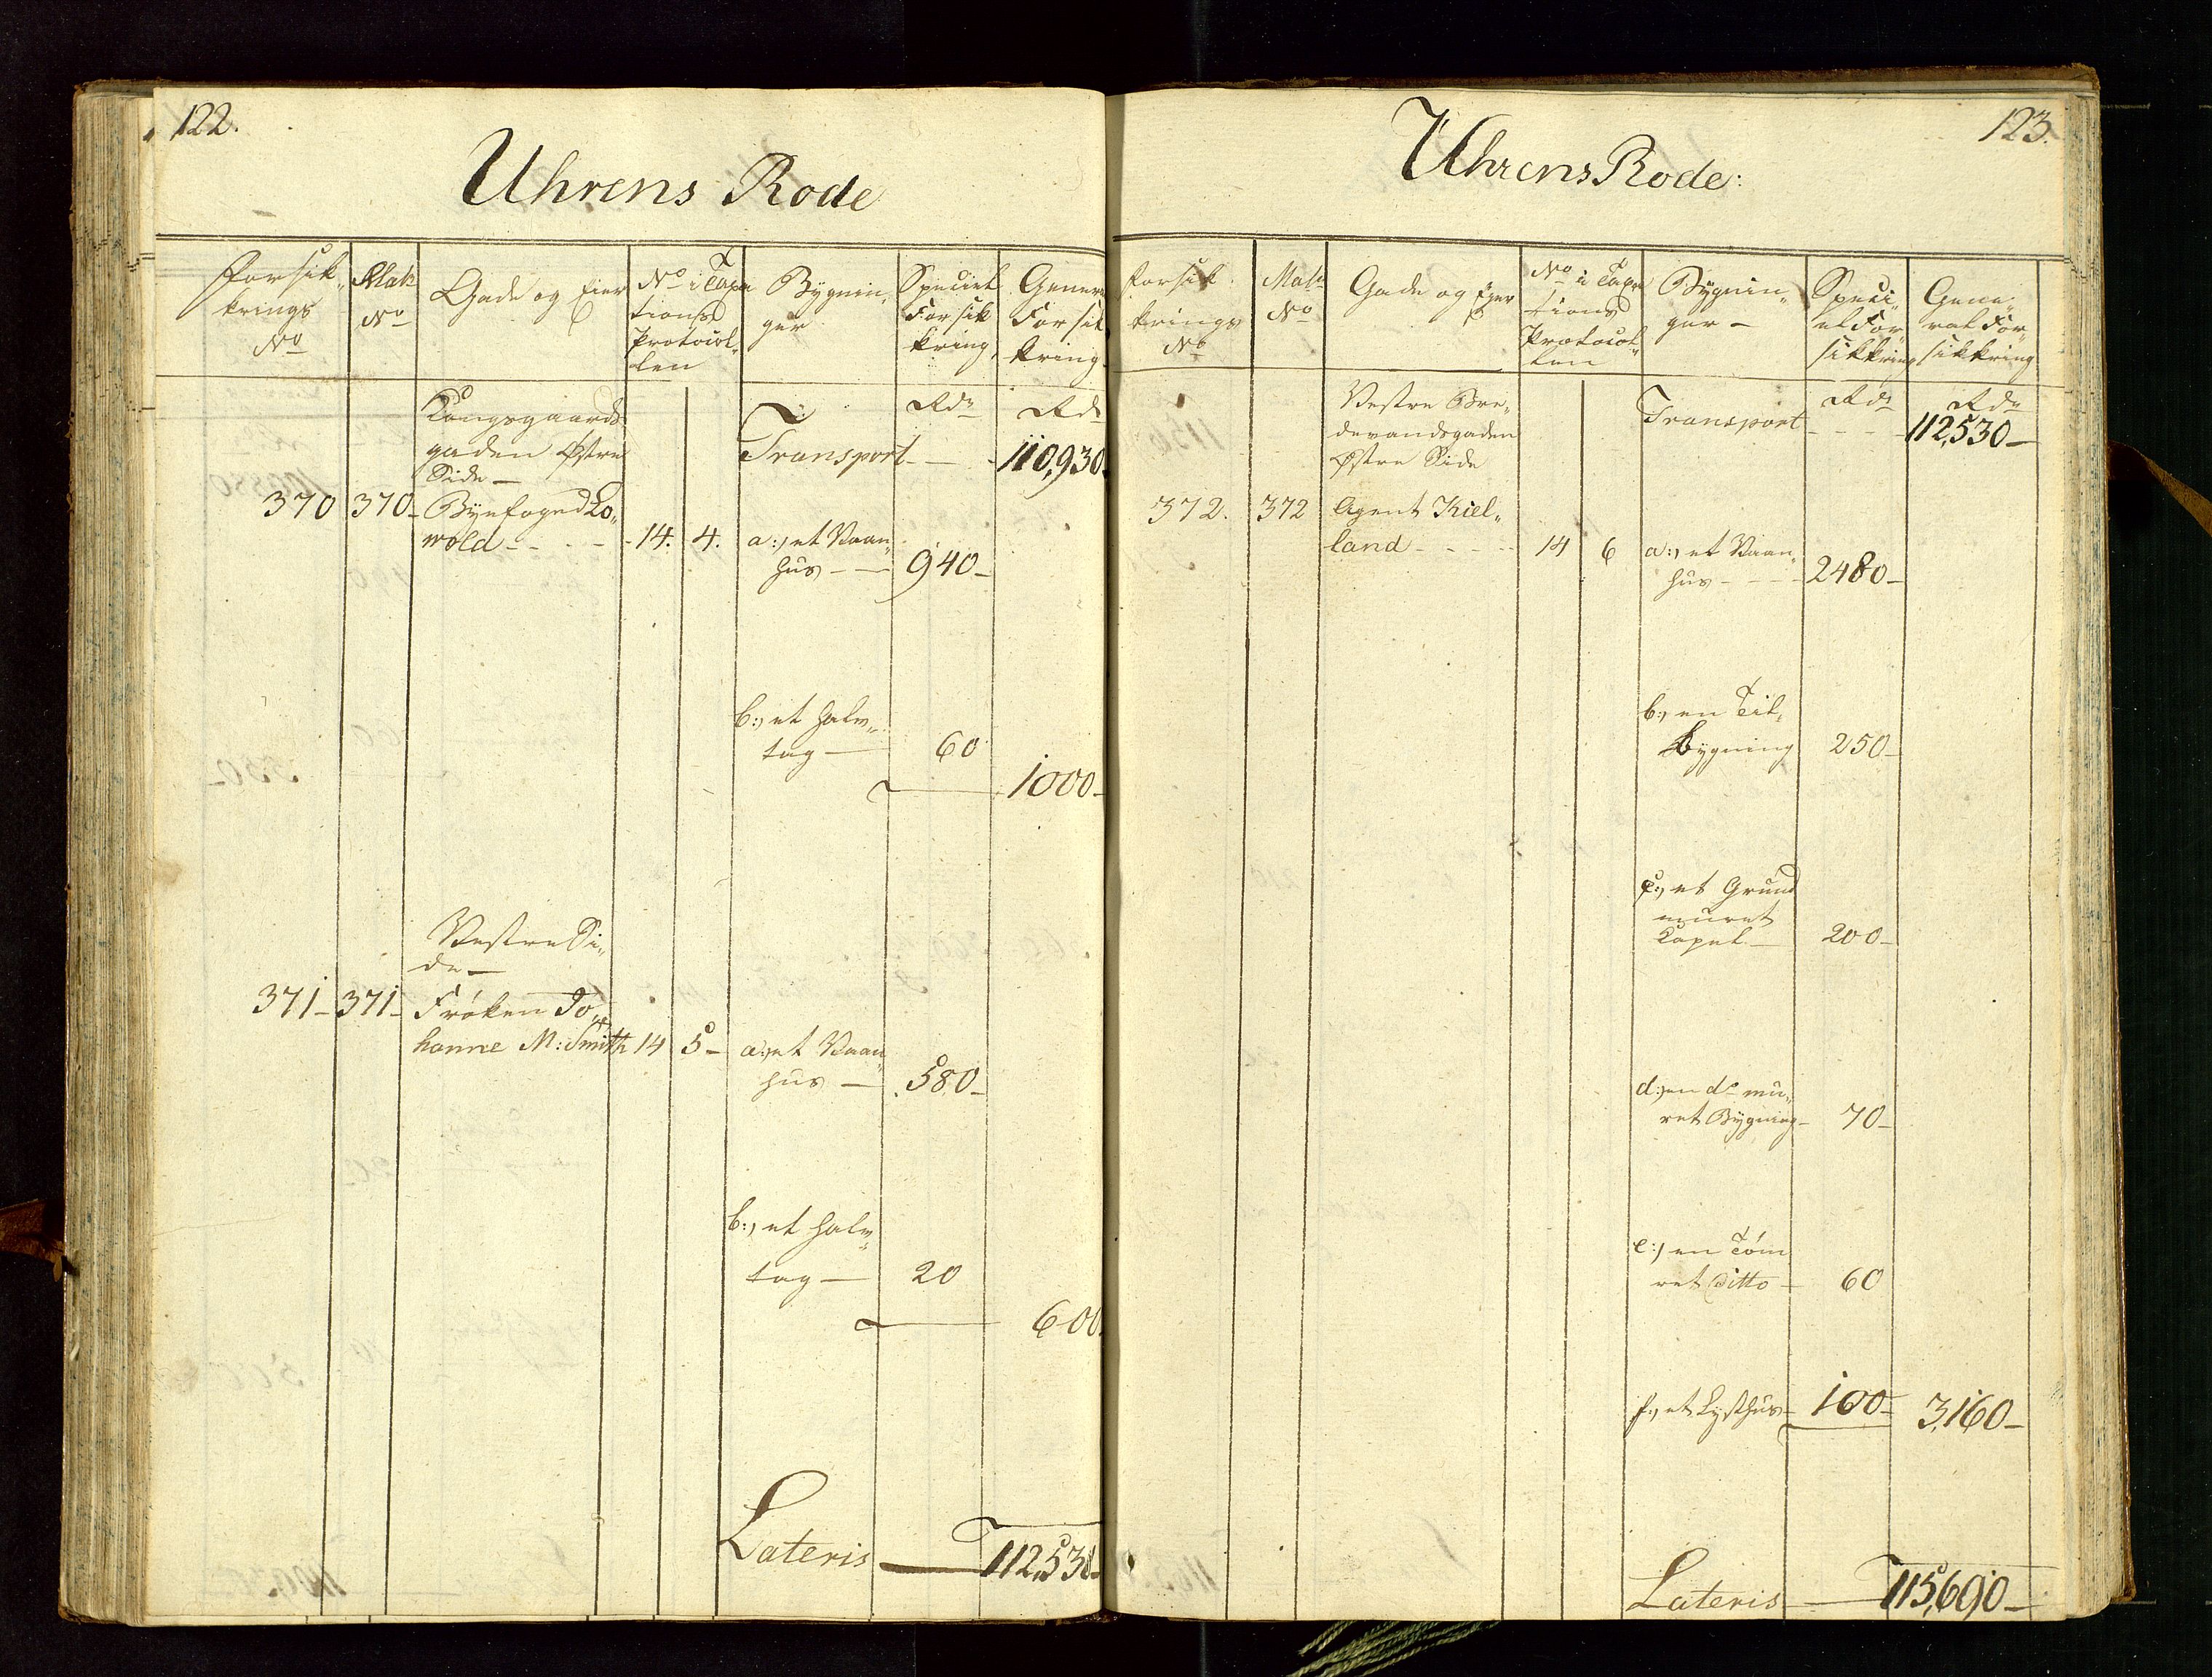 122.
Uhrens Rode
Forsik„
krings
No
Mat:
No
Gade og Eier
No i Taxa
tions
Protocol„
len
Bygnin„
ger
Speciel
Forsik
kring
Gener
Forsik
kring
Kongsgaards
gaden Østre
Side —
Transport
Rdr
Rd
110,930
370 370 Byefoged Lo„
wold - - - - 14. 4. a:, et Vaan„
hus — 940 —
b:, et halv„
tag — 60
1000 —
Vestre Si„
de —
371 — 371 — Frøken Jo„
hanne M: Smith 14 5 — a:, et Vaan„
hus — 580 —
b:, et halv„
tag — 20
600
Lateris — 112,530 —
123.
Uhrens Rode:
Forsik
krings
No
Mat:
No
Gade og Eyer
No i Taxa
tions
Protocol„
len
Bygnin„
ger —
Speci„
el For„
sikkring
Gene„
ral For„
sikkring
Vestre Bre„
devandsgaden
Østre Side
Transport
Rdr
Rdr
112,530 —
372. 372 Agent Kiel„
land - - - - 14 6 a:, et Vaan„
hus - - - 2480 —
b:, en Til„
bygning 250 —
c:, et Grund
muret
Capel — 200 —
d:, en do mu„
ret Bygning — 70 —
e:, en Tøm
ret Ditto — 60
f:, et Lysthus — 100 — 3,160 —
Lateris — 115,690 —